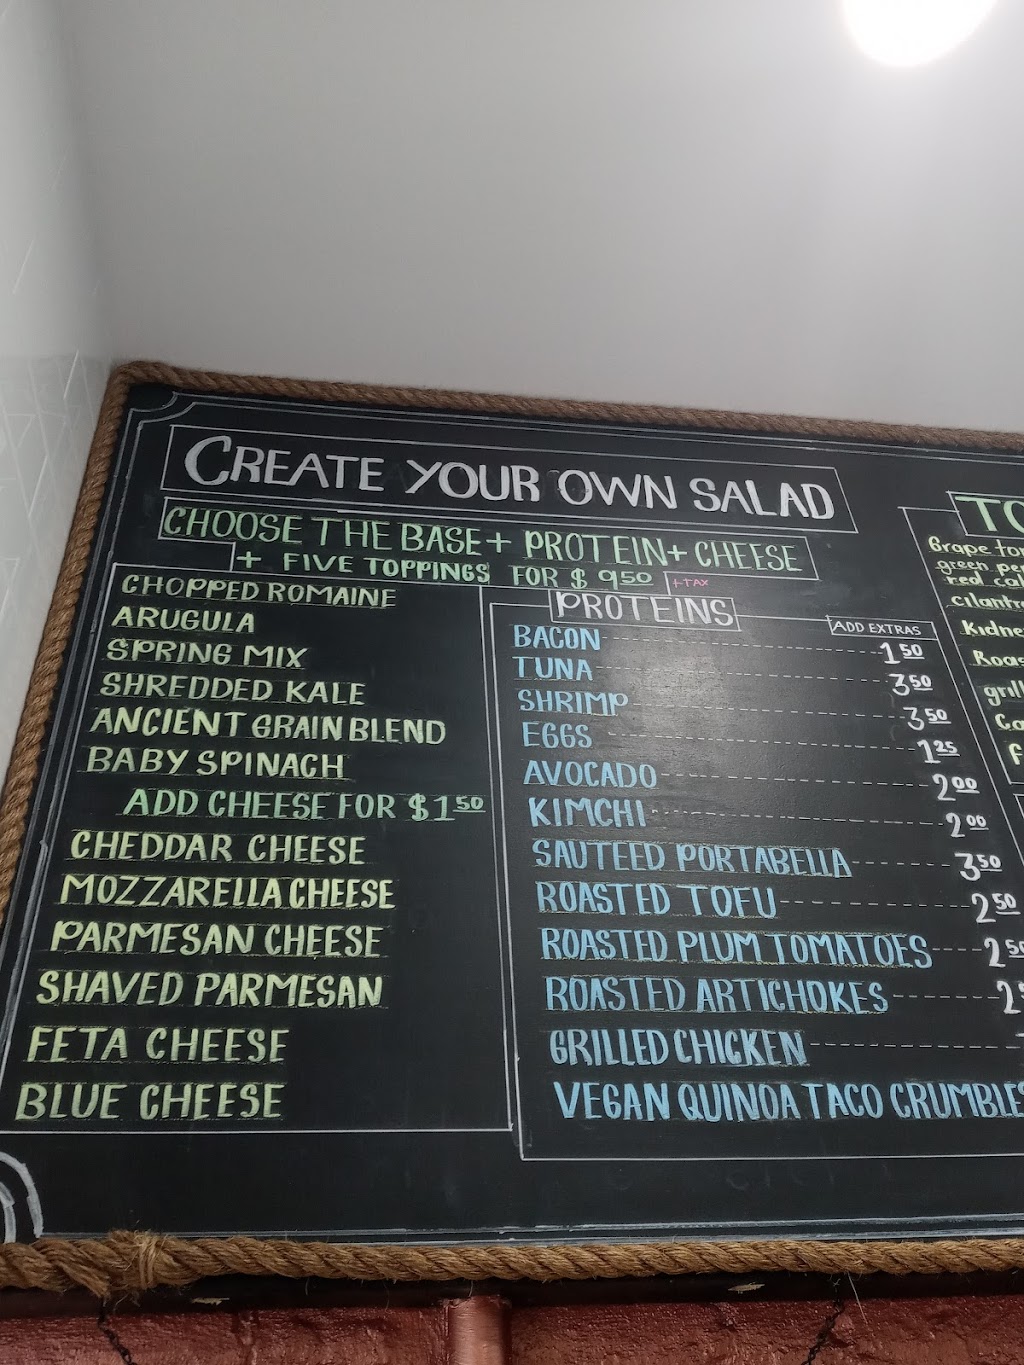 CREATE YOUR OWN SALAD
CHOOSE THE BASE + PROTEIN + CHEESE
+ FIVE TOPPINGS FOR $9.50 +TAX
CHOPPED ROMAINE
ARUGULA
SPRING MIX
SHREDDED KALE
ANCIENT GRAIN BLEND
BABY SPINACH
ADD CHEESE FOR $1.50
CHEDDAR CHEESE
MOZZARELLA CHEESE
PARMESAN CHEESE
SHAVED PARMESAN
FETA CHEESE
BLUE CHEESE
PROTEINS
ADD EXTRAS
BACON 1.50
TUNA 3.50
SHRIMP 3.50
EGGS 1.25
AVOCADO 2.00
KIMCHI 2.00
SAUTEED PORTABELLA 3.50
ROASTED TOFU 2.50
ROASTED PLUM TOMATOES 2.50
ROASTED ARTICHOKES
GRILLED CHICKEN
VEGAN QUINOA TACO CRUMBLES
Grape
green
red
Kidne